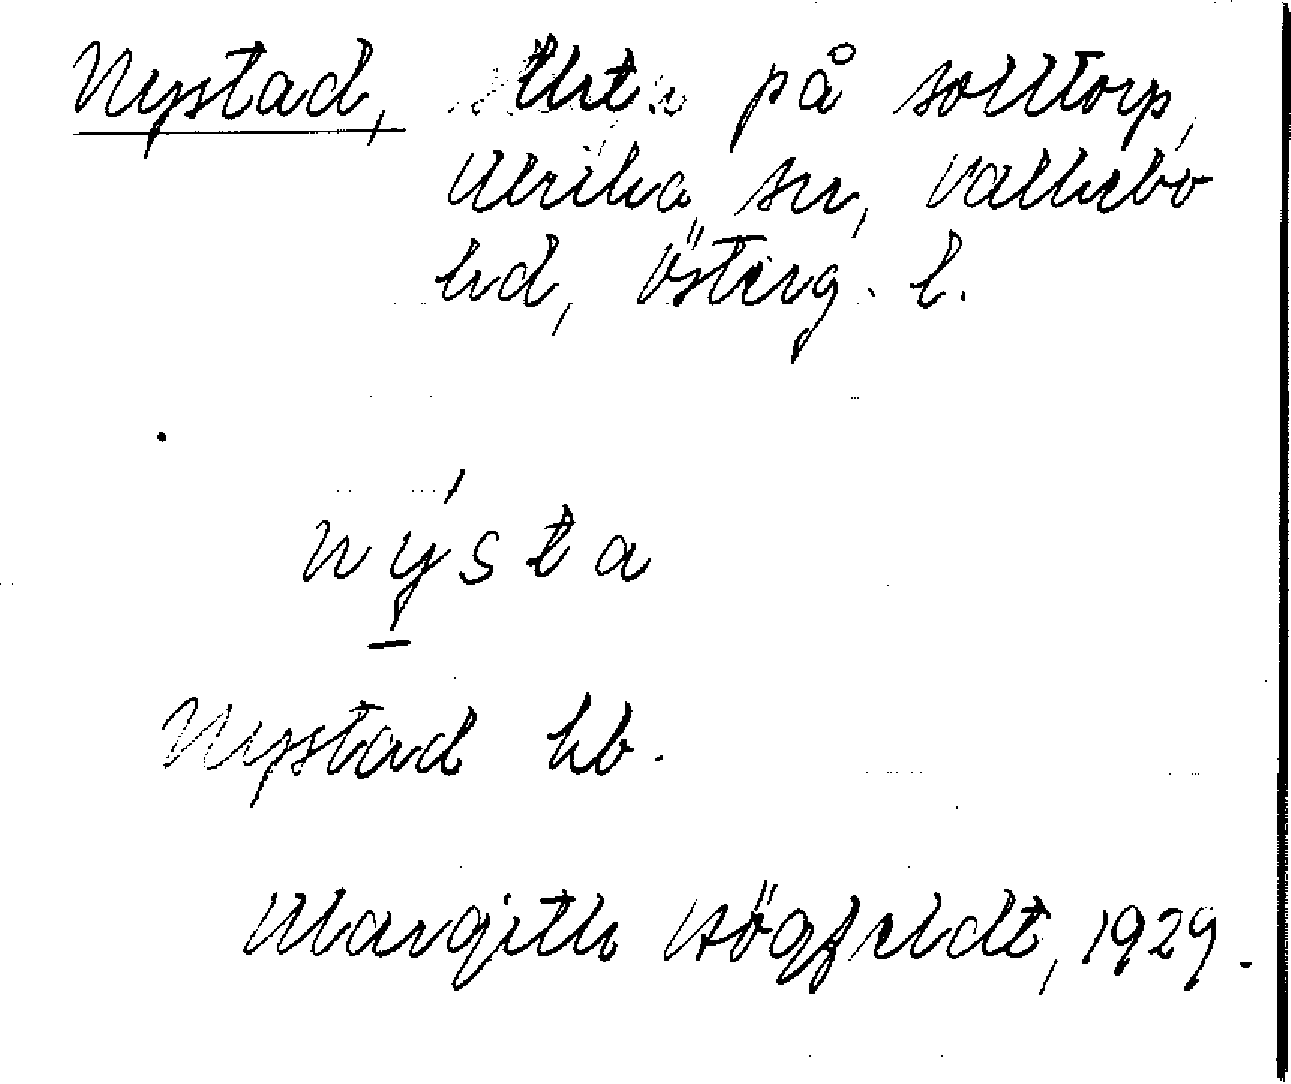 Nystad, tht på Solltorp,
Ulrika sn, Vallebo
hd, Österg. l.
nýsta
Nystad hb.
Margith Högfeldt, 1929.